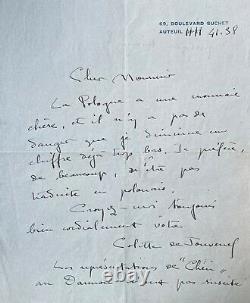 69, BOULEVARD SUCHET
AUTEUIL
Cher Monsieur
La Pologne a une monnaie
chère, et il n'y a pas de
danger que je diminue un
chiffre déjà trop bas. Je préfère,
de beaucoup, n'être pas
traduite en polonais.
Croyez-moi toujours
bien cordialement vôtre
Colette de Jouvenel
Les représentations de "Chéri"
au Daunou